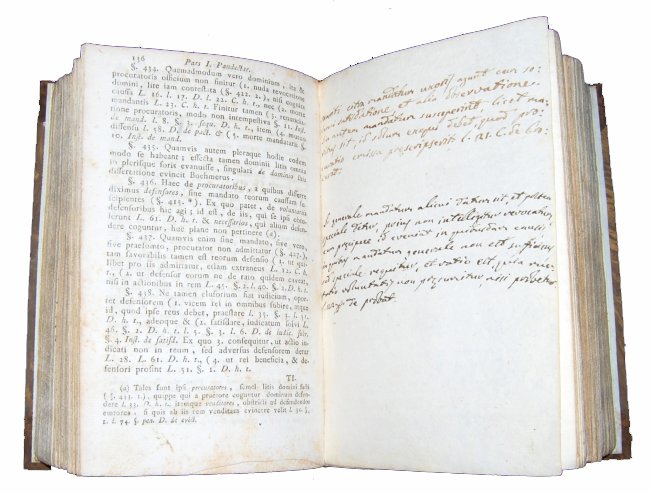 136 Pars I. Pandectar.
§. 434. Quemadmodum vero dominium, ita &
procuratoris officium non finitur (1. nuda revocatione
domini, lite iam contestata (§. 422. 2.), nisi cognita
caussa L. 16. l. 17. D. l. 22. C. h. t., nec (2. morte
mandantis L. 23. C. h. t. Finitur tamen (3. renuncia-
tione procuratoris, modo non intempestiva §. 11. Inst.
de mand. l. 8. §. 3. sequ. D. h. t., item (4. mutuo
dissensu l. 58. D. de pact. & (5. morte mandatarii §.
10. Inst. de mand.
§. 435. Quamvis autem pleraque hodie eodem
modo se habeant; effecta tamen dominii litis omnia
in plerisque foris evanuisse, singulari de dominio litis
dissertatione evincit Boehmerus.
§. 436. Haec de procuratoribus, a quibus differre
diximus defensores, sine mandato reorum caussam su-
scipientes (§. 415. *). Ex quo patet, de voluntariis
defensoribus hic agi; id est, de iis, qui se ipsi obtu-
lerunt L. 61. D. h. t. & necessarios, qui alium defen-
dere coguntur, huc plane non pertinere (a).
§. 437. Quamvis enim sine mandato, sive vero,
sive praesumto, procurator non admittatur (§. 417.),
tam favorabilis tamen est reorum defensio (1. ut qui-
libet pro iis admittatur, etiam extraneus L. 12. C. h.
t., (2. ut defensor eorum ne de rato quidem caveat,
nisi in actionibus in rem L. 45. §. 2. l. 40. §. 2. D. h. t.
§. 438. Ne tamen eluforium fiat iudicium, opor-
tet defensorem (1. vicem rei in omnibus subire, imo
id, quod ipse reus debet, praestare l. 35. §. 3. l. 51.
D. h. t., adeoque & (2. satisdare, iudicatum solvi L.
46. §. 2. D. h. t. l. 5. §. 3. l. 6. D. de iudic. solv.
§. 4. Inst. de satisd. Ex quo 3. consequitur, ut actio in-
dicati non in reum, sed adversus defensorem detur
L. 28. L. 61. D. h. t., (4. ut rei beneficia, & de-
fensori prosint L. 51. §. 1. D. h. t.
TI.
(a) Tales sunt ipsi procuratores, semel litis domini facti
(§. 423. 1.), quippe qui a praetore coguntur dominum defen-
dere l. 33. D. h. t. itemque venditores, obstricti ad defendendos
emtores; si quis ab iis rem venditam evincere velit l. 39. §.
2. l. 74. § pen. D. de evict.
mandatum uxoris agunt cum so-
et alio observatione.
autem mandatum susceperint licet ma-
sit, et solum exequi debet quod pro-
l. 21. C. de
generale mandatum alicui datum sit, et postea
speciale detur, prius non intelligitur revocatum
mandatum generale non est sufficiens
speciale requiritur, et ratio est quia
voluntatis non praesumitur, nisi probetur
de probat.